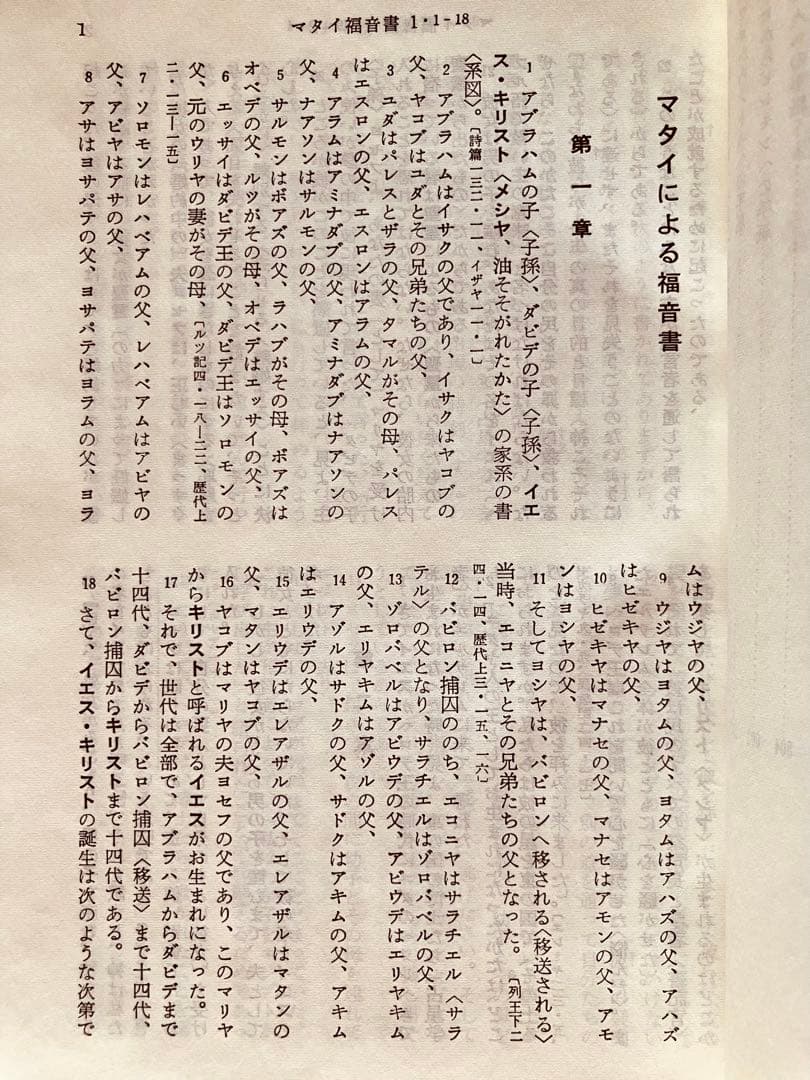 1
マタイ福音書 1・1-18
マタイによる福音書
第一章
1 アブラハムの子〈子孫〉、ダビデの子〈子孫〉、イエ
ス・キリスト〈メシヤ、油そそがれたかた〉の家系の書
〈系図〉。〔詩篇一三二・一一、イザヤ一一・一〕
2 アブラハムはイサクの父であり、イサクはヤコブの
父、ヤコブはユダとその兄弟たちの父、
3 ユダはパレスとザラの父、タマルがその母、パレス
はエスロンの父、エスロンはアラムの父、
4 アラムはアミナダブの父、アミナダブはナアソンの
父、ナアソンはサルモンの父、
5 サルモンはボアズの父、ラハブがその母、ボアズは
オベデの父、ルツがその母、オベデはエッサイの父、
6 エッサイはダビデ王の父、ダビデ王はソロモンの
父、元のウリヤの妻がその母、〔ルツ記四・一八―二二、歴代上
二・一三―一五〕
7 ソロモンはレハベアムの父、レハベアムはアビヤの
父、アビヤはアサの父、
8 アサはヨサパテの父、ヨサパテはヨラムの父、ヨラ
ムはウジヤの父、
9 ウジヤはヨタムの父、ヨタムはアハズの父、アハズ
はヒゼキヤの父、
10 ヒゼキヤはマナセの父、マナセはアモンの父、アモ
ンはヨシヤの父、
11 そしてヨシヤは、バビロンへ移される〈移送される〉
当時、エコニヤとその兄弟たちの父となった。〔列王下二
四・一四、歴代上三・一五、一六〕
12 バビロン捕囚ののち、エコニヤはサラチエル〈サラ
テル〉の父となり、サラチエルはゾロバベルの父、
13 ゾロバベルはアビウデの父、アビウデはエリヤキム
の父、エリヤキムはアゾルの父、
14 アゾルはサドクの父、サドクはアキムの父、アキム
はエリウデの父、
15 エリウデはエレアザルの父、エレアザルはマタンの
父、マタンはヤコブの父、
16 ヤコブはマリヤの夫ヨセフの父であり、このマリヤ
からキリストと呼ばれるイエスがお生まれになった。
17 それで、世代は全部で、アブラハムからダビデまで
十四代、ダビデからバビロン捕囚〈移送〉まで十四代、
バビロン捕囚からキリストまで十四代である。
18 さて、イエス・キリストの誕生は次のような次第で